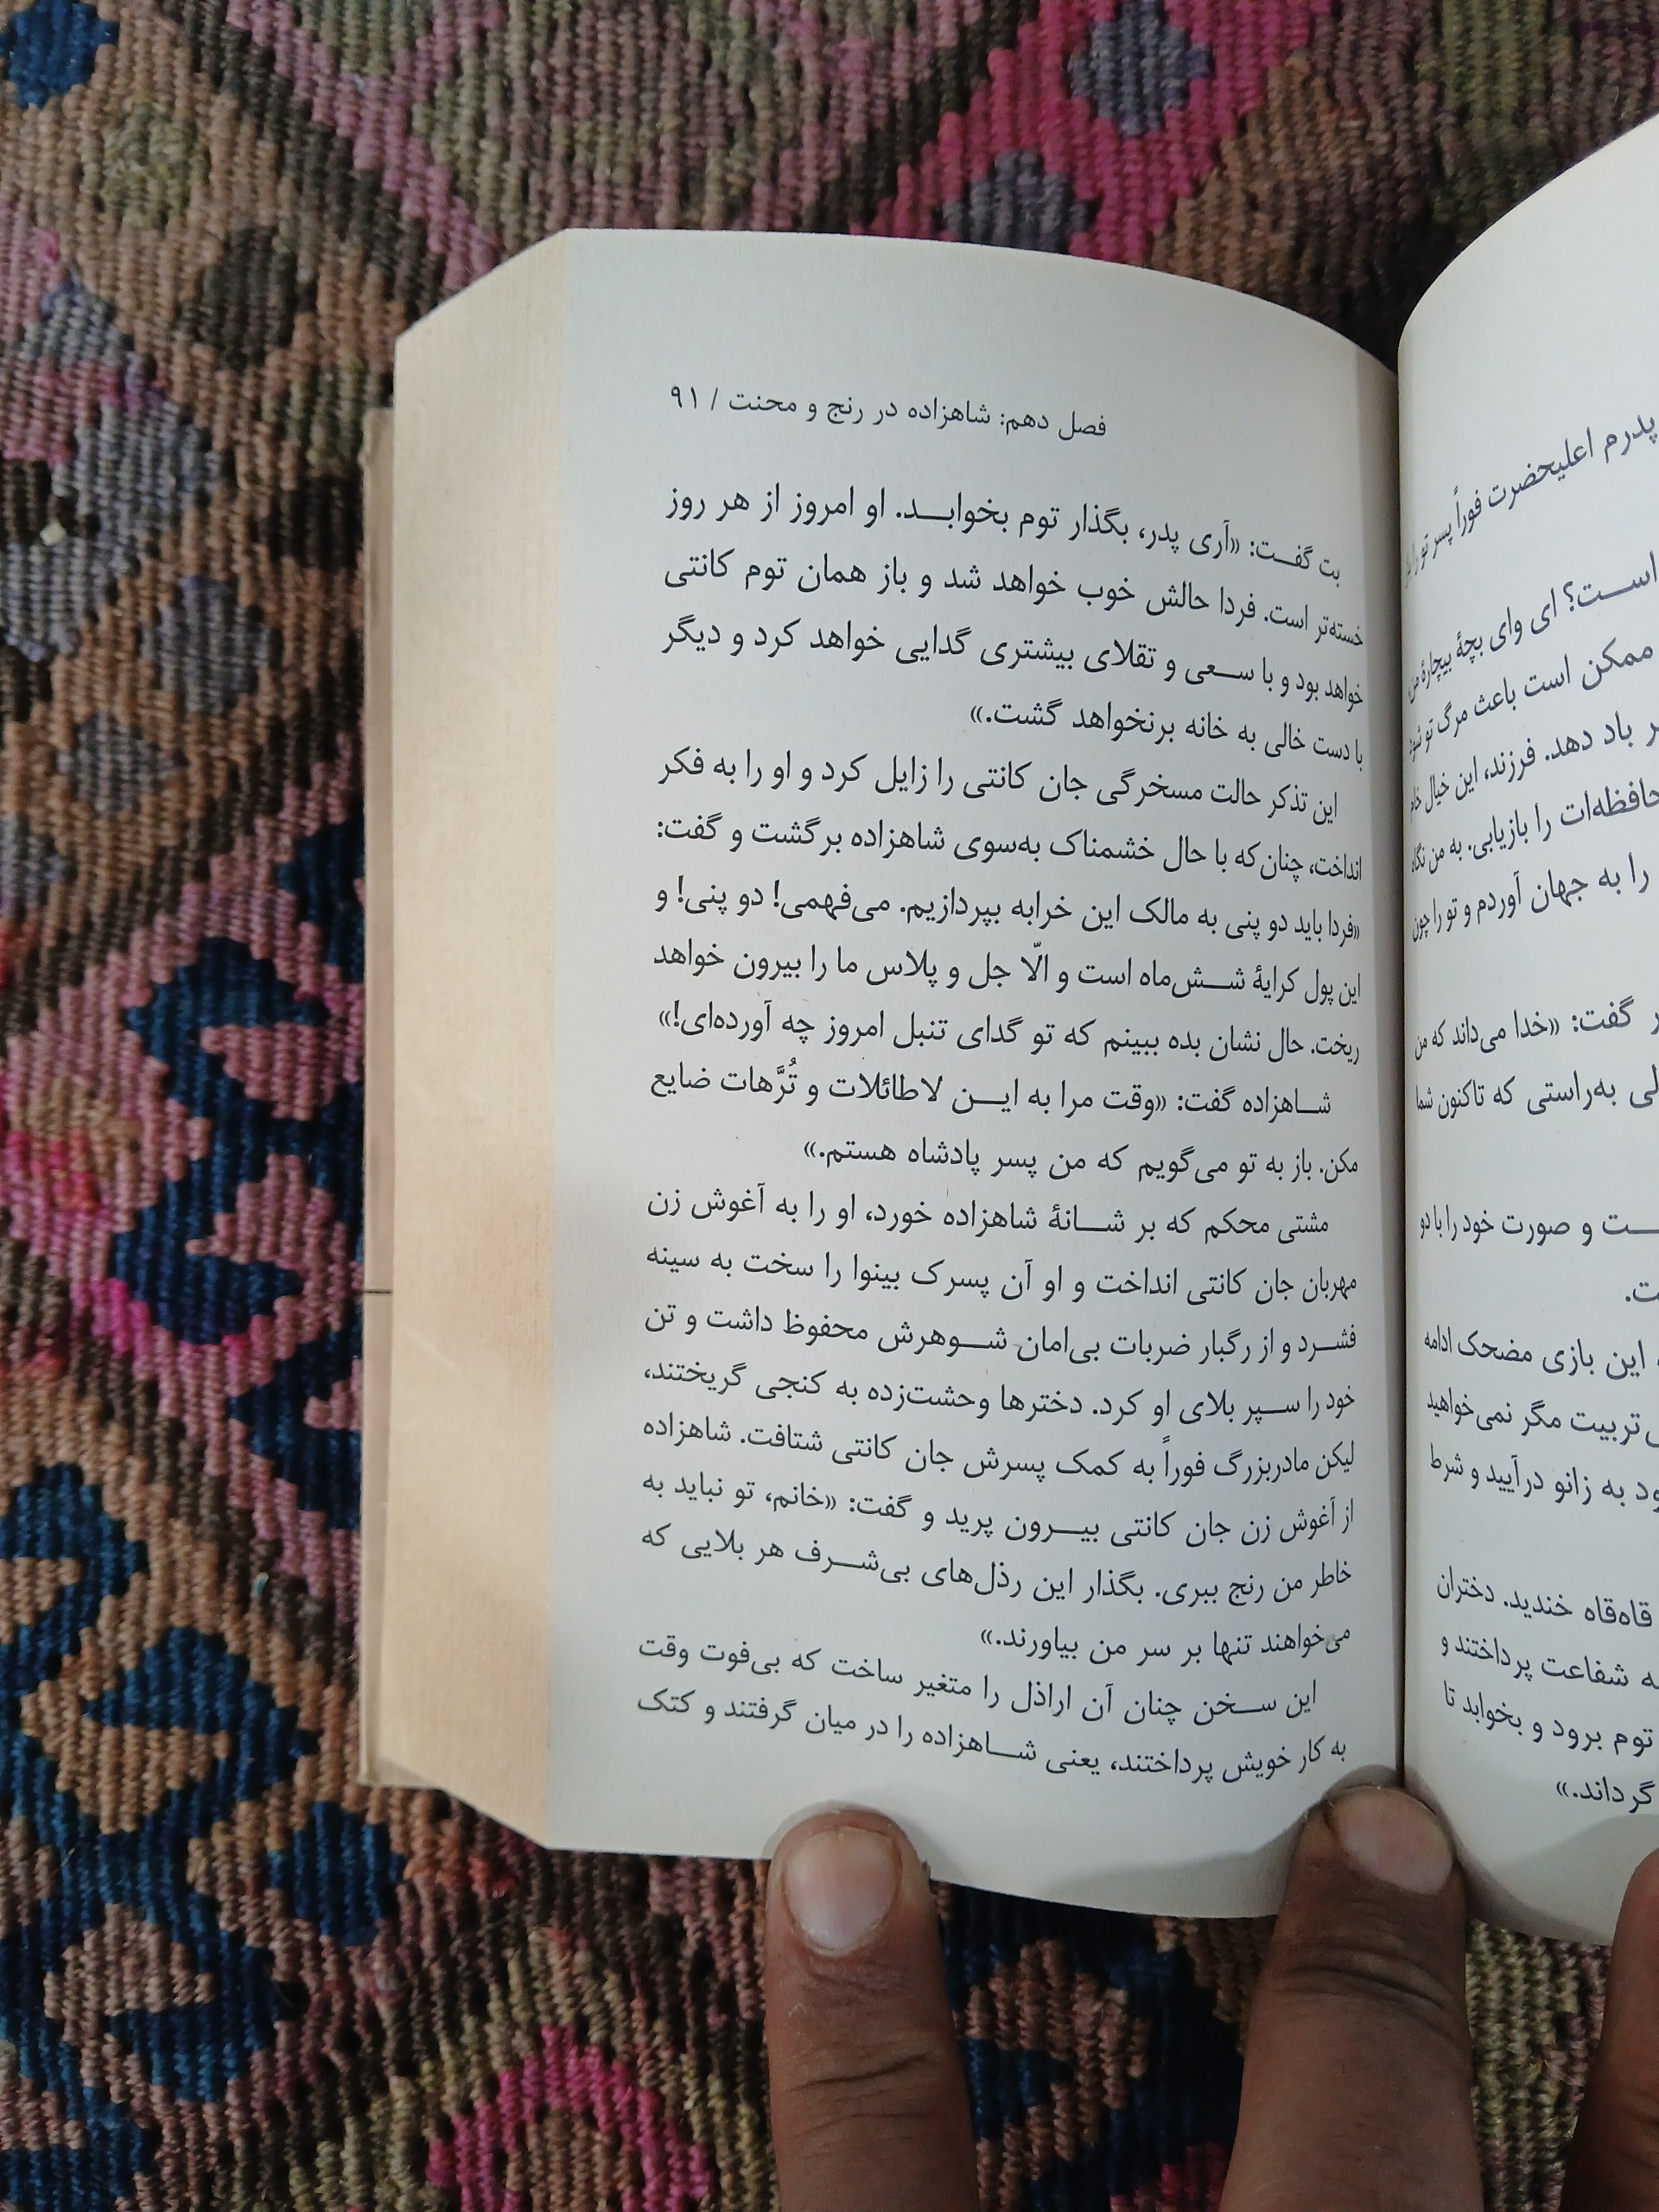 فصل دهم: شاهزاده در رنج و محنت / ۹۱
بت گفـت: «آری پدر، بگذار توم بخوابـد. او امروز از هر روز
خسته‌تر است. فردا حالش خوب خواهد شد و باز همان توم کانتی
خواهد بود و با سـعی و تقلای بیشتری گدایی خواهد کرد و دیگر
با دست خالی به خانه برنخواهد گشت.»
این تذکر حالت مسخرگی جان کانتی را زایل کرد و او را به فکر
انداخت، چنان‌که با حال خشمناک به‌سوی شاهزاده برگشت و گفت:
«فردا باید دو پنی به مالک این خرابه بپردازیم. می‌فهمی! دو پنی! و
این پول کرایهٔ شـش‌ماه است و الّا جل و پلاس ما را بیرون خواهد
ریخت. حال نشان بده ببینم که تو گدای تنبل امروز چه آورده‌ای!»
شـاهزاده گفت: «وقت مرا به ایـن لاطائلات و تُرَّهات ضایع
مکن. باز به تو می‌گویم که من پسر پادشاه هستم.»
مشتی محکم که بر شـانهٔ شاهزاده خورد، او را به آغوش زن
مهربان جان کانتی انداخت و او آن پسرک بینوا را سخت به سینه
فشـرد و از رگبار ضربات بی‌امان شـوهرش محفوظ داشت و تن
خود را سـپر بلای او کرد. دخترها وحشت‌زده به کنجی گریختند،
لیکن مادربزرگ فوراً به کمک پسرش جان کانتی شتافت. شاهزاده
از آغوش زن جان کانتی بیـرون پرید و گفت: «خانم، تو نباید به
خاطر من رنج ببری. بگذار این رذل‌های بی‌شـرف هر بلایی که
می‌خواهند تنها بر سر من بیاورند.»
این سـخن چنان آن اراذل را متغیر ساخت که بی‌فوت وقت
به کار خویش پرداختند، یعنی شـاهزاده را در میان گرفتند و کتک
پدرم اعلیحضرت فوراً پسر تو را
اسـت؟ ای وای بچهٔ بیچارهٔ من
ممکن است باعث مرگ تو شود
باد دهد. فرزند، این خیال خام
حافظه‌ات را بازیابی. به من نگاه
را به جهان آوردم و تو را چون
گفت: «خدا می‌داند که من
به‌راستی که تاکنون شما
و صورت خود را با دو
این بازی مضحک ادامه
تربیت مگر نمی‌خواهید
به زانو درآیید و شرط
قاه‌قاه خندید. دختران
شفاعت پرداختند و
توم برود و بخوابد تا
گرداند.»